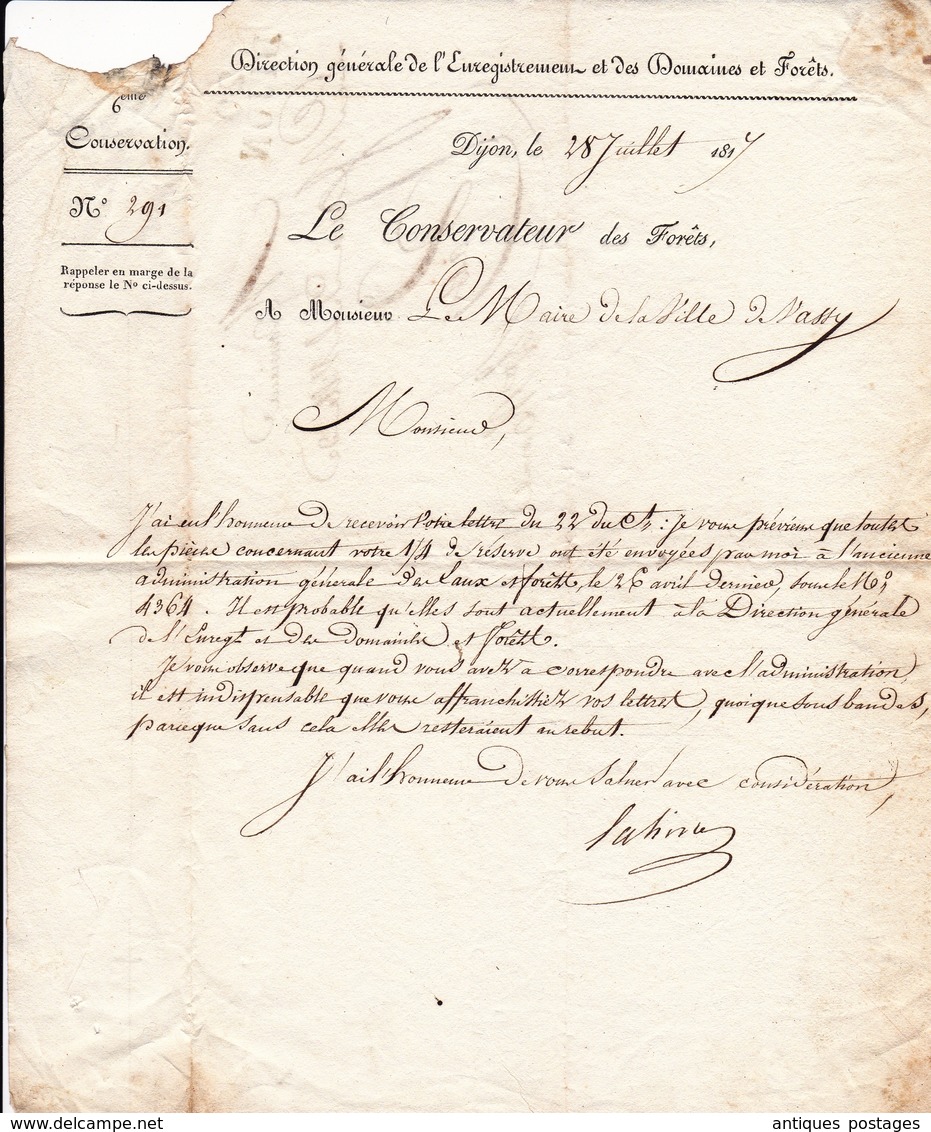 Direction générale de l'Enregistrement et des Domaines et Forêts.
6eme
Conservation.
Dijon, le 28 Juillet 1817
N° 291
Rappeler en marge de la
réponse le N° ci-dessus.
Le Conservateur des Forêts,
A Monsieur Le Maire de la Ville de Vassy
Monsieur,
J'ai eu l'honneur de recevoir votre lettre du 22 du Ct, : je vous préviens que toutes
les pièces concernant votre 1/4 de réserve ont été envoyées par moi à l'ancienne
administration générale des Eaux et forêts, le 26 avril dernier, sous le N°
4364. Il est probable qu'elles sont actuellement à la Direction générale
de l'Enregt et des domaines et forêts.
Je vous observe que quand vous avez à correspondre avec l'administration,
il est indispensable que vous affranchissiez vos lettres, quoique sous bandes,
parceque sans cela elles resteraient au rebut.
J'ai l'honneur de vous saluer avec considération,
antiques postages